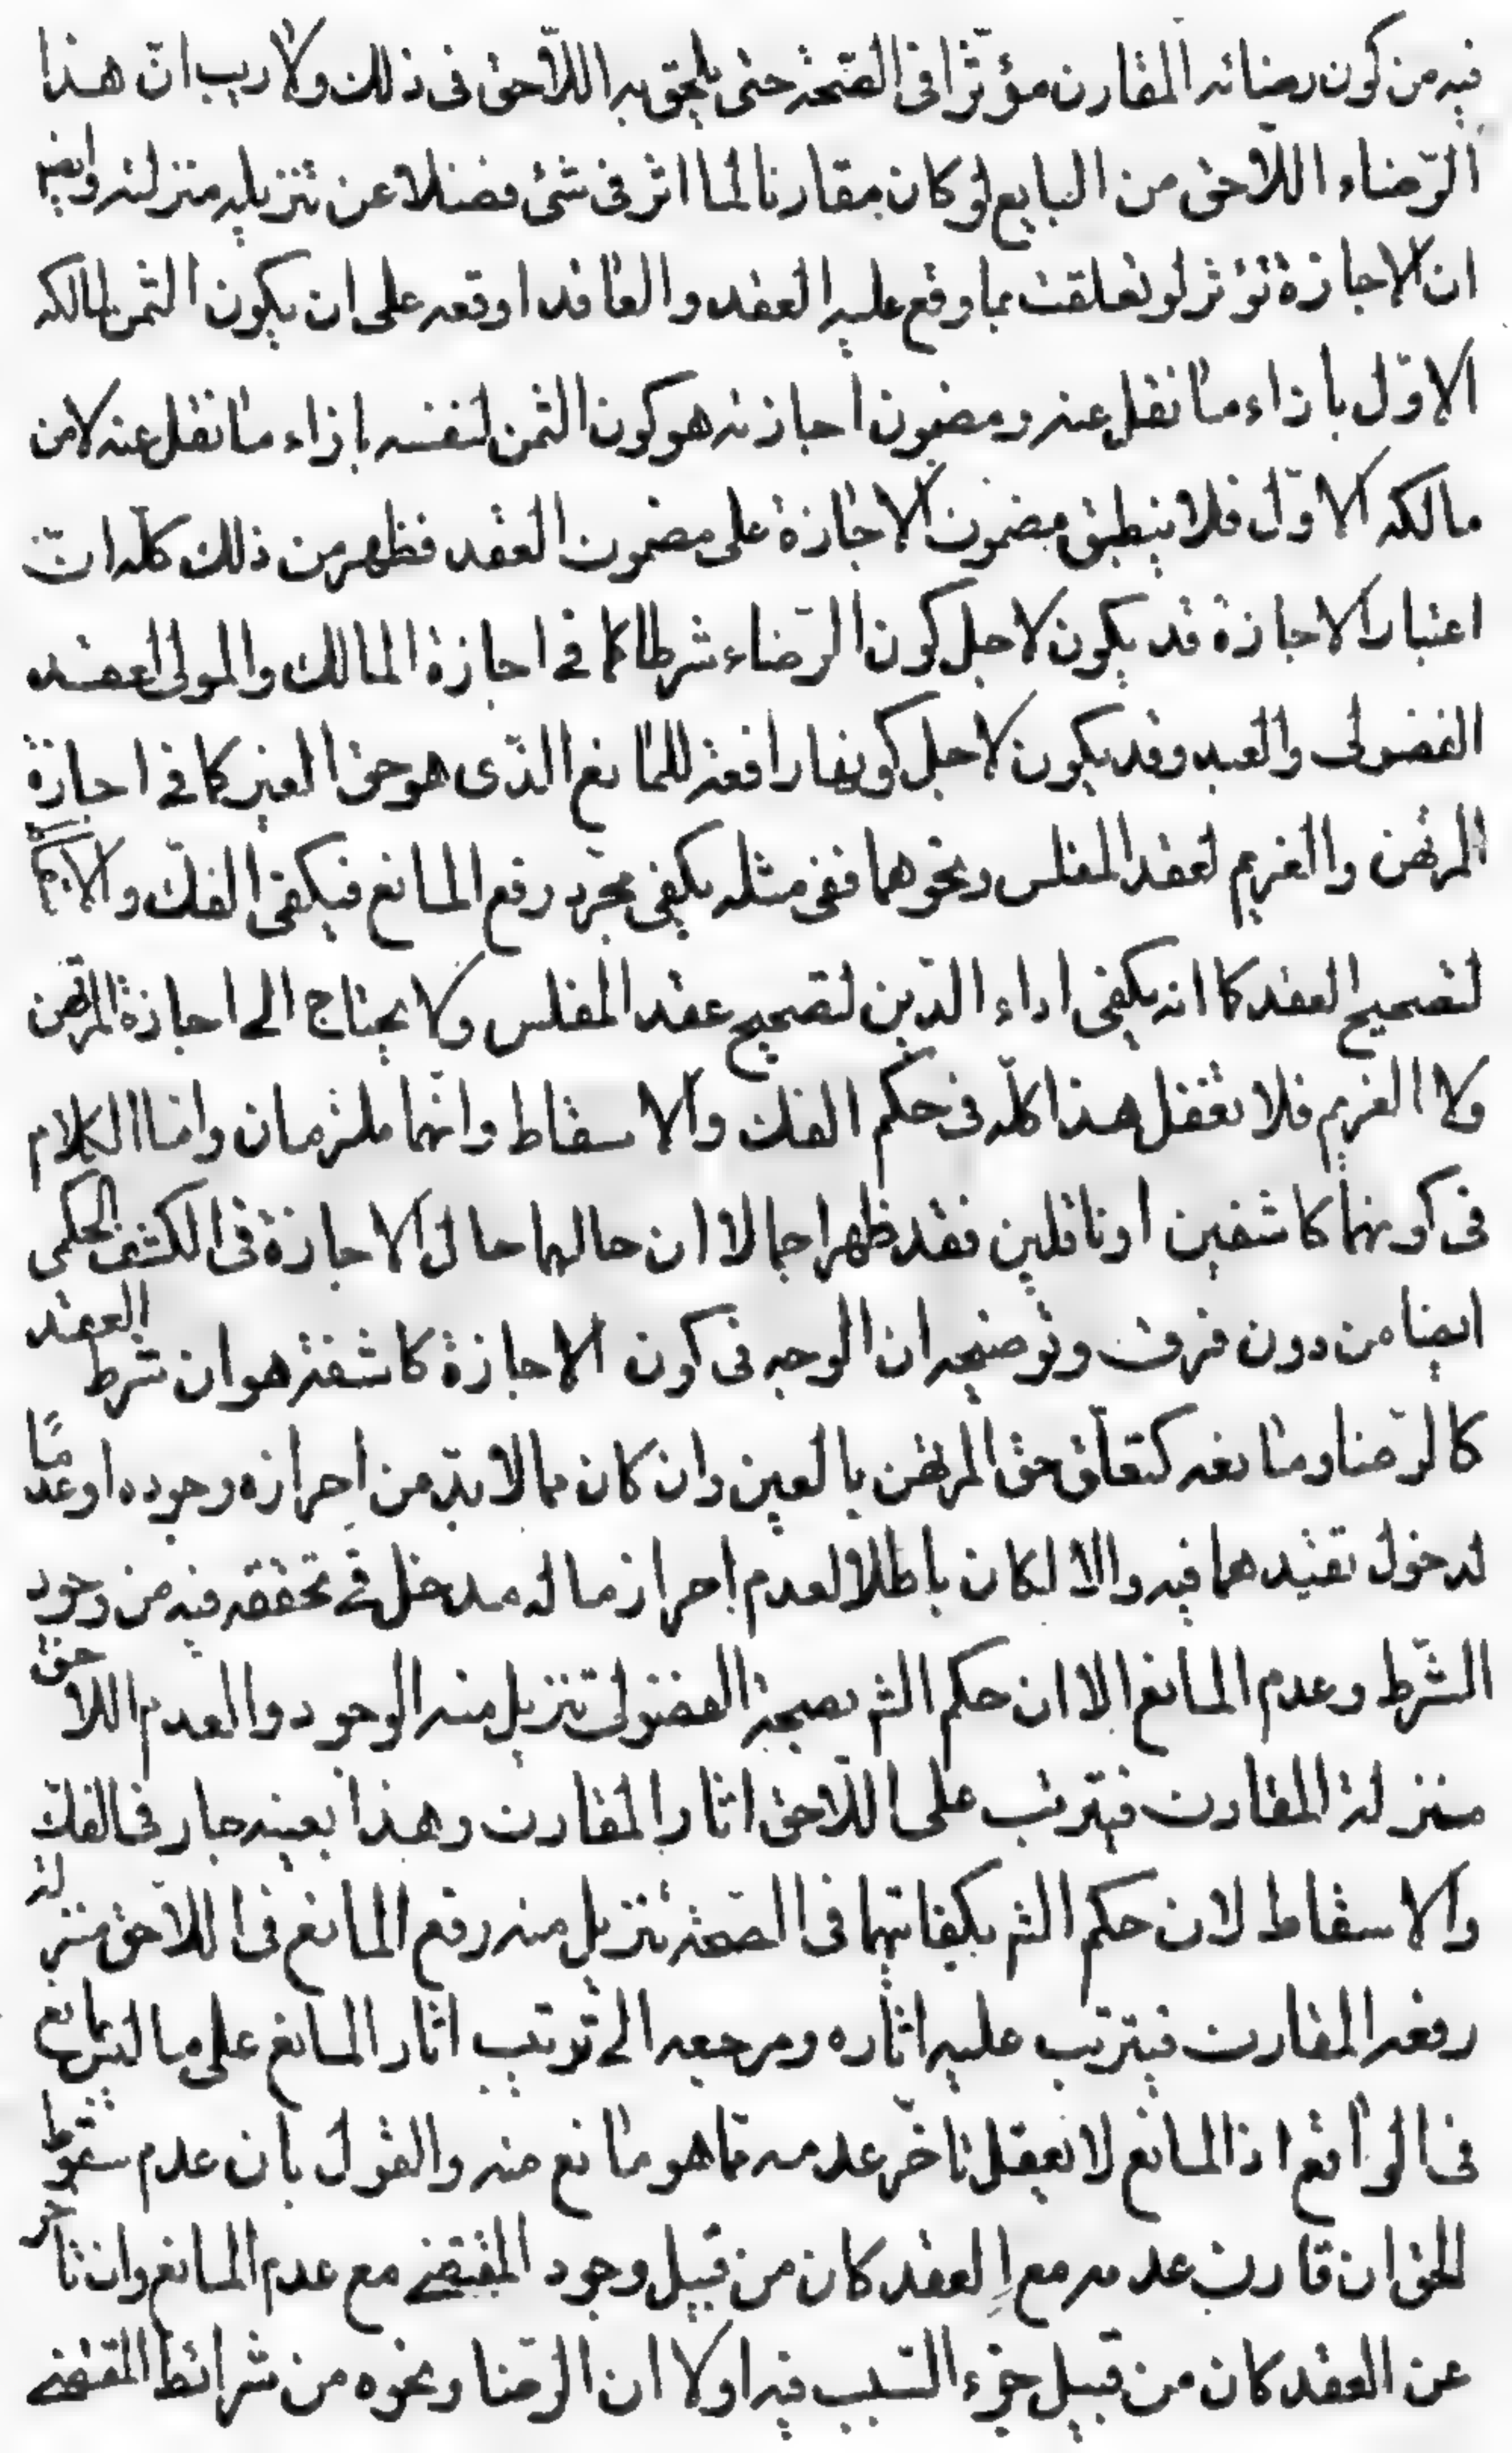 فيه من كون رضائه المقارن مؤثرا في الصّحة حتى يلحق به اللّاحق في ذلك ولا ريب انّ هذا
الرّضاء اللّاحق من البايع لو كان مقارنا لما اثر في شئ فضلا عن تنزيله منزلته وايضا
ان الاجازة تؤثر لو تعلقت بما وقع عليه العقد والعاقد اوقعه على ان يكون الثمن لمالكه
الاوّل بازاء ما نقل عنه ومضمون اجازته هو كون الثمن لنفسه بازاء ما نقل عنه لا من
مالكه الاوّل فلا ينطبق مضمون الاجازة على مضمون العقد فظهر من ذلك كلّه انّ
اعتبار الاجازة قد يكون لاجل كون الرّضاء شرطا كما في اجازة المالك والمولى لعقد
الفضولى والعبد وقد يكون لاجل كونها رافعة للمانع الذّى هو حق الغير كما في اجازة
المرتهن والغريم لعقد المفلس ونحوهما ففى مثله يكفى مجرّد رفع المانع فيكفى الفكّ والابراء
لتصحيح العقد كما انه يكفى اداء الدّين لتصحيح عقد المفلس ولا يحتاج الى اجازة المرتهن
ولا الغريم فلا تغفل هذا كلّه في حكم الفك والاسقاط وانّهما ملزمان وامّا الكلام
في كونهما كاشفين او ناقلين فقد ظهر اجمالا ان حالهما حال الاجازة في الكشف الحكمى
ايضا من دون فرق وتوضيحه ان الوجه في كون الاجازة كاشفة هو ان شرط العقد
كالرّضا ومانعه كتعلّق حق المرتهن بالعين وان كان مما لا بدّ من احرازه وجوده او عدمًا
لدخول تقيدهما فيه والا لكان باطلا لعدم احراز ما له مدخل في تحققه فيه من وجود
الشّرط وعدم المانع الا ان حكم الشرع بصحة الفضولى تنزيل منه الوجود والعدم اللاحق
منزلة المقارن فيترتب على اللّاحق اثار المقارن وهذا بعينه جار في الفكّ
والاسقاط لان حكم الشرع بكفايتهما في الصّحة تنزيل منه رفع المانع في اللاحق منزلة
رفعه المقارن فيترتب عليه اثاره ومرجعه الى ترتيب اثار المانع على ما ليس بمانع
في الواقع اذ المانع لا يعقل تاخّر عدمه عمّا هو مانع منه والقول بان عدم سقوط
الحق ان قارن عدمه مع العقد كان من قبيل وجود المقتضى مع عدم المانع وان تاخر
عن العقد كان من قبيل جزء السّبب فيه اولا ان الرّضا ونحوه من شرائط المقتضى